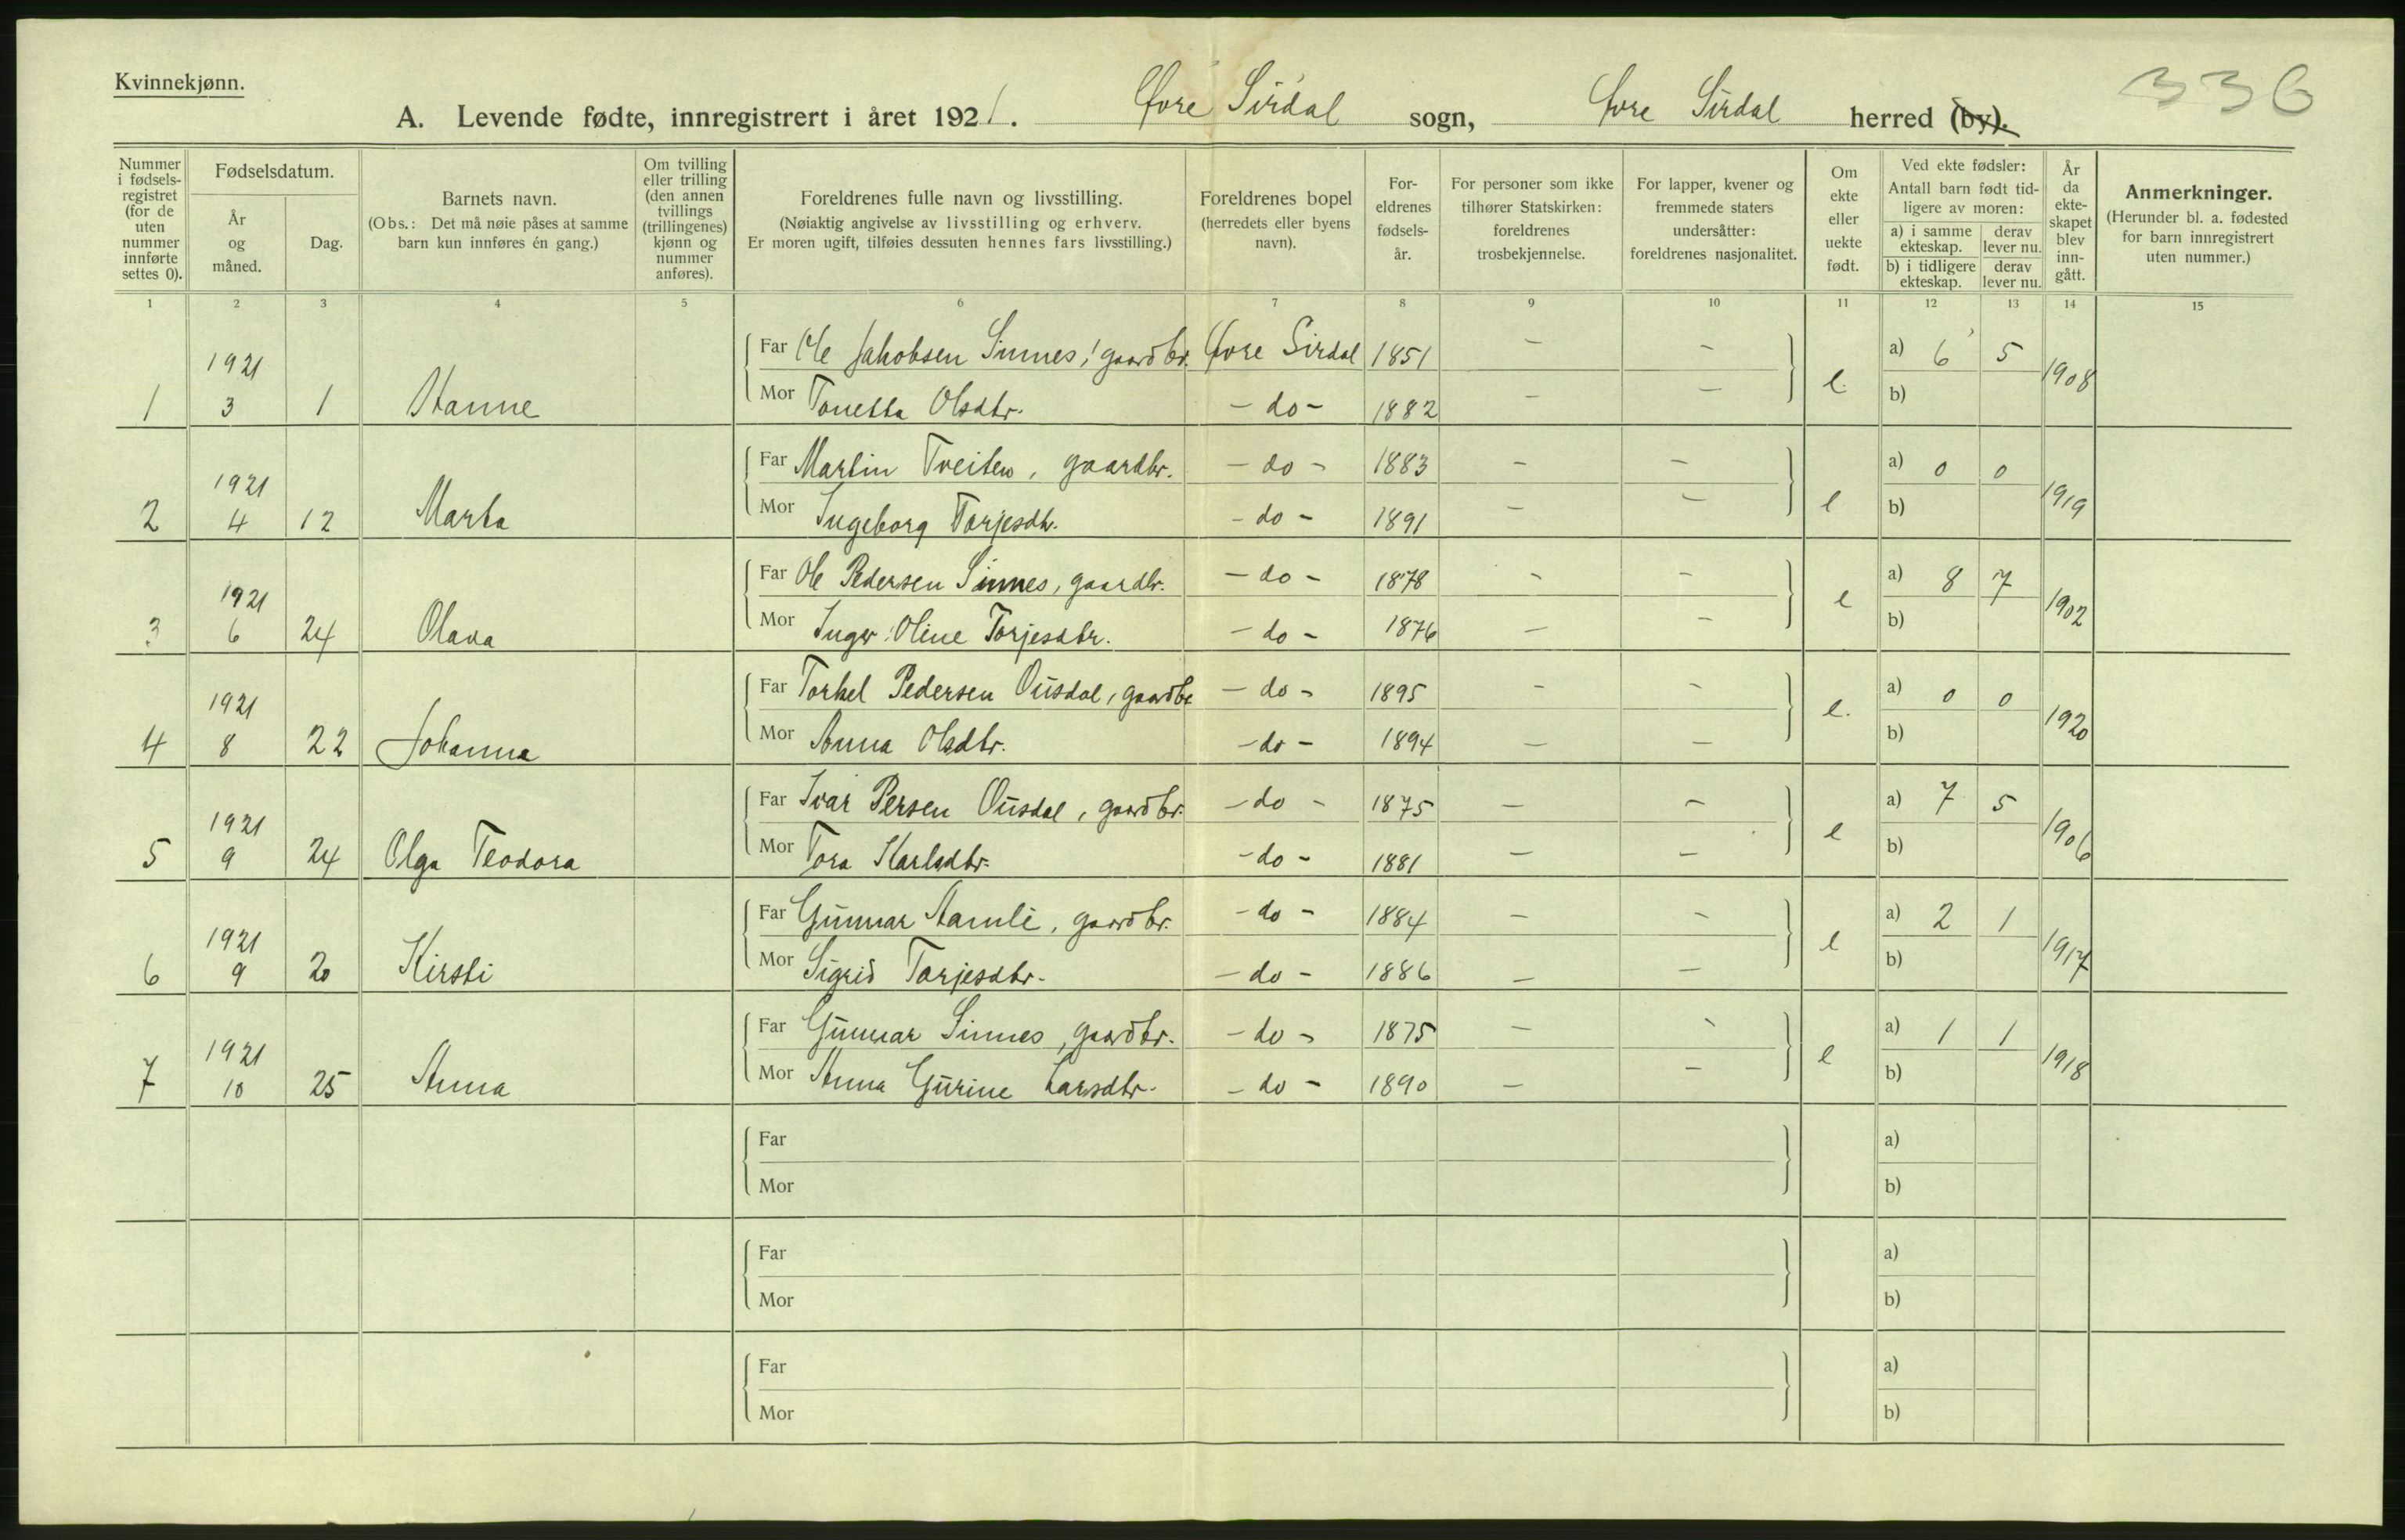 Kvinnekjønn.
336
A. Levende fødte, innregistrert i året 1921. Øvre Sirdal sogn, Øvre Sirdal herred (by).
Nummer i fødselsregistret (for de uten nummer innførte settes 0).
Fødselsdatum.
År og måned.
Dag.
Barnets navn.
(Obs.: Det må nøie påses at samme barn kun innføres én gang.)
Om tvilling eller trilling (den annen tvillings (trillingenes) kjønn og nummer anføres).
Foreldrenes fulle navn og livsstilling.
(Nøiaktig angivelse av livsstilling og erhverv.
Er moren ugift, tilføies dessuten hennes fars livsstilling.)
Foreldrenes bopel (herredets eller byens navn).
For-eldrenes fødsels-år.
For personer som ikke tilhører Statskirken: foreldrenes trosbekjennelse.
For lapper, kvener og fremmede staters undersåtter: foreldrenes nasjonalitet.
Om ekte eller uekte født.
Ved ekte fødsler:
Antall barn født tidligere av moren:
a) i samme ekteskap. derav lever nu.
b) i tidligere ekteskap. derav lever nu.
År da ekteskapet blev inngått.
Anmerkninger.
(Herunder bl. a. fødested for barn innregistrert uten nummer.)
1 2 3 4 5 6 7 8 9 10 11 12 13 14 15
1 1921 3 1 Hanne
Far Ole Jakobsen Sinnes, gaardbr. Øvre Sirdal 1851 – – e. a) 6 5 1908
Mor Tonetta Olsdtr. – do – 1882 – – b)
2 1921 4 12 Marta
Far Martin Tveiten, gaardbr. – do – 1883 – – e a) 0 0 1919
Mor Ingeborg Torjesdtr. – do – 1891 – – b)
3 1921 6 24 Olava
Far Ole Pedersen Sinnes, gaardbr. – do – 1878 – – e a) 8 7 1902
Mor Inger Oline Torjesdtr. – do – 1876 – – b)
4 1921 8 22 Johanna
Far Torkel Pedersen Ousdal, gaardbr – do – 1895 – – e. a) 0 0 1920
Mor Anna Olsdtr. – do – 1894 – – b)
5 1921 9 24 Olga Teodora
Far Ivar Persen Ousdal, gaardbr. – do – 1875 – – e a) 7 5 1906
Mor Tora Karlsdtr. – do – 1881 – – b)
6 1921 9 20 Kirsti
Far Gunnar Aamli, gaardbr. – do – 1884 – – e a) 2 1 1917
Mor Sigrid Torjesdtr. – do – 1886 – – b)
7 1921 10 25 Anna
Far Gunnar Sinnes, gaardbr. – do – 1875 – – e a) 1 1 1918
Mor Anna Gurine Larsdtr. – do – 1890 – – b)
Far a)
Mor b)
Far a)
Mor b)
Far a)
Mor b)